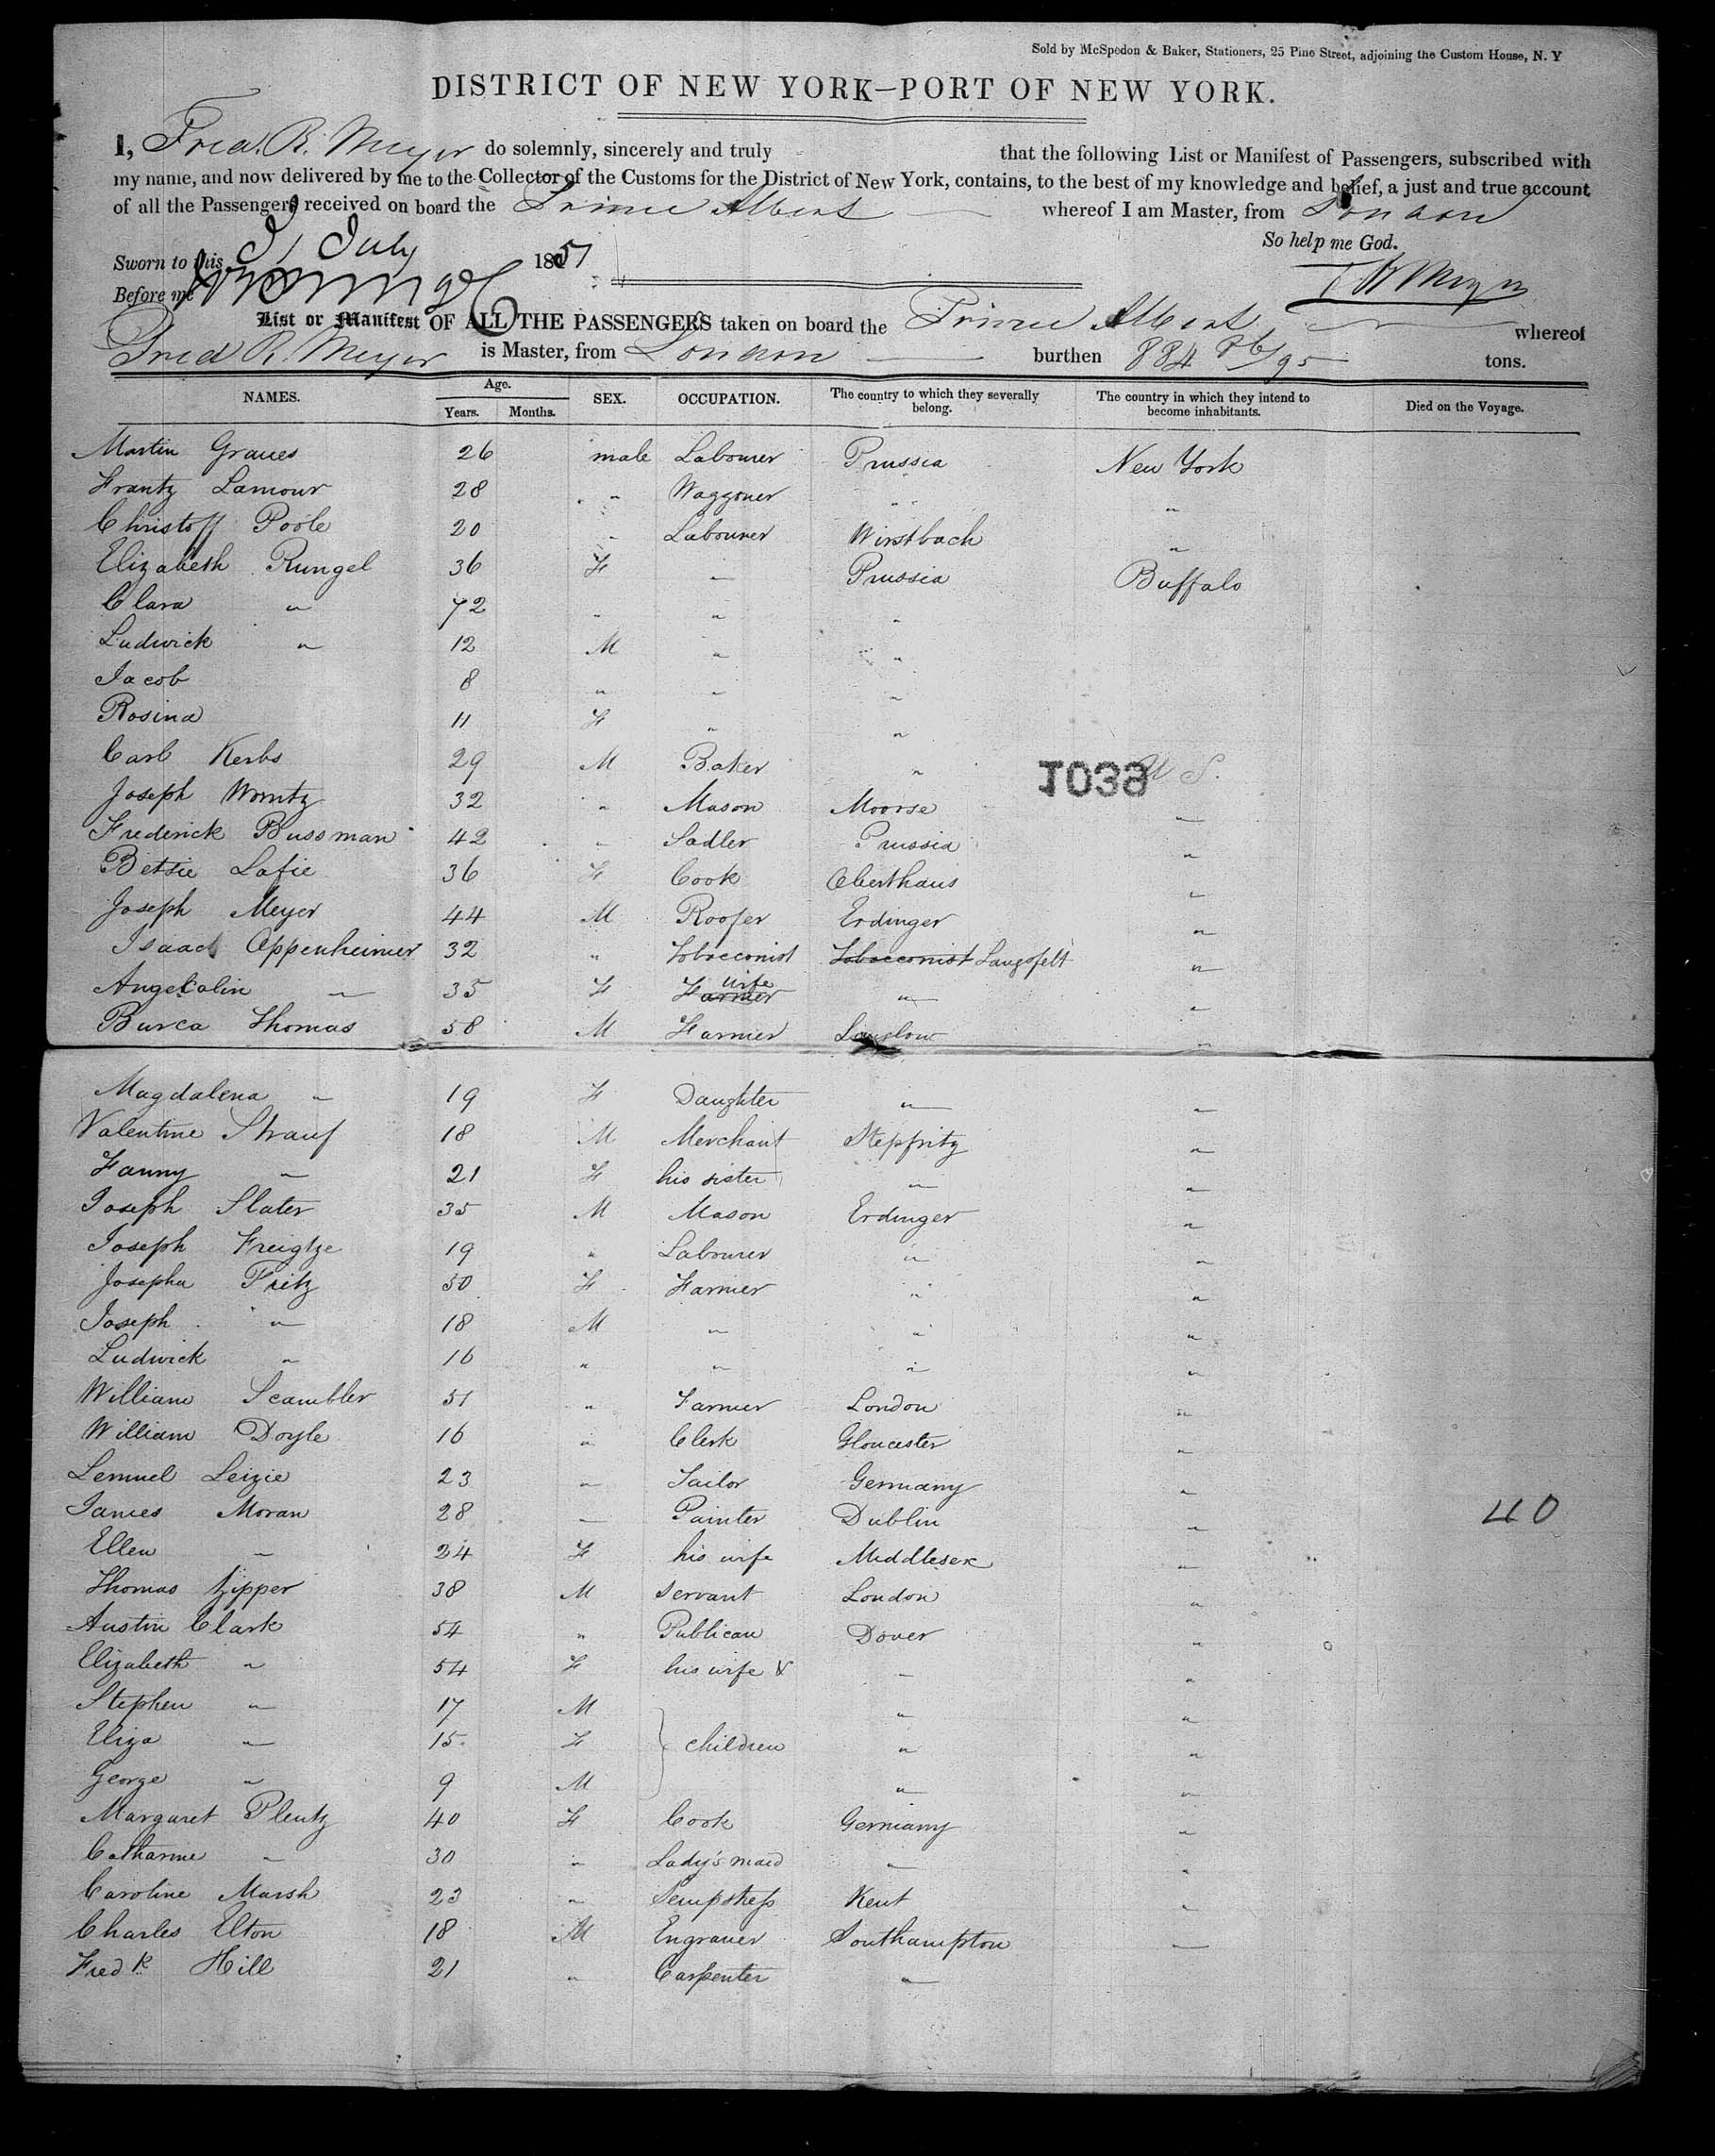 Sold by McSpedon & Baker, Stationers, 25 Pine Street, adjoining the Custom House, N. Y
DISTRICT OF NEW YORK—PORT OF NEW YORK.
I, Fred. R. Meyer do solemnly, sincerely and truly that the following List or Manifest of Passengers, subscribed with
my name, and now delivered by me to the Collector of the Customs for the District of New York, contains, to the best of my knowledge and belief, a just and true account
of all the Passengers received on board the Prince Albert whereof I am Master, from London
So help me God.
Sworn to this 31 July 1851
Before me
F R Meyer
List or Manifest OF ALL THE PASSENGERS taken on board the Prince Albert whereof
Fred R. Meyer is Master, from London burthen 884 86/95 tons.
NAMES. Age. Years. Months. SEX. OCCUPATION. The country to which they severally belong. The country in which they intend to become inhabitants. Died on the Voyage.
Martin Graues 26 male Labourer Prussia New York
Frantz Lamour 28 " Waggoner " "
Christoff Poole 20 " Labourer Wirstbach "
Elizabeth Rungel 36 F — Prussia Buffalo
Clara " 72 " " "
Ludwick " 12 M " "
Jacob 8 " " "
Rosina 11 F " "
Carl Kerbs 29 M Baker " U S.
1038
Joseph Womtz 32 " Mason Moorse "
Frederick Bussman 42 " Sadler Prussia "
Betsie Lafie 36 F Cook Oberthaus "
Joseph Meyer 44 M Roofer Erdinger "
Isaac Oppenheimer 32 " Tobacconist Tobacconist Langsfelt "
Angelcalin " 35 F Farmer wife " "
Burca Thomas 58 M Farmer Lauslow "
Magdalena " 19 F Daughter " "
Valentine Strauf 18 M Merchant Stepfritz "
Fanny " 21 F his sister " "
Joseph Slater 35 M Mason Erdinger "
Joseph Freigtze 19 " Labourer " "
Josepha Fritz 50 F Farmer " "
Joseph " 18 M " " "
Ludwick " 16 " " " "
William Scambler 51 " Farmer London "
William Doyle 16 " Clerk Gloucester "
Lemuel Leizie 23 " Tailor Germany "
James Moran 28 " Painter Dublin " 40
Ellen " 24 F his wife Middlesex "
Thomas Zipper 38 M Servant London "
Austin Clark 54 " Publican Dover "
Elizabeth " 54 F his wife & " "
Stephen " 17 M " "
Eliza " 15 F children " "
George " 9 M " "
Margaret Plentz 40 F Cook Germany "
Catharine " 30 " Lady's maid " "
Caroline Marsh 23 " Sempstress Kent "
Charles Elton 18 M Engraver Southampton "
Fredk Hill 21 " Carpenter "